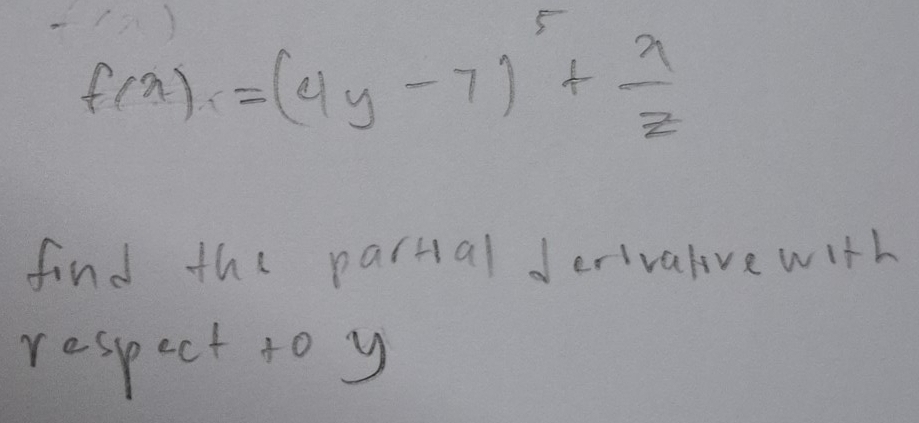 f(x)
f(x) = (4y - 7)^5 + x/z
find the partial derivative with
respect to y